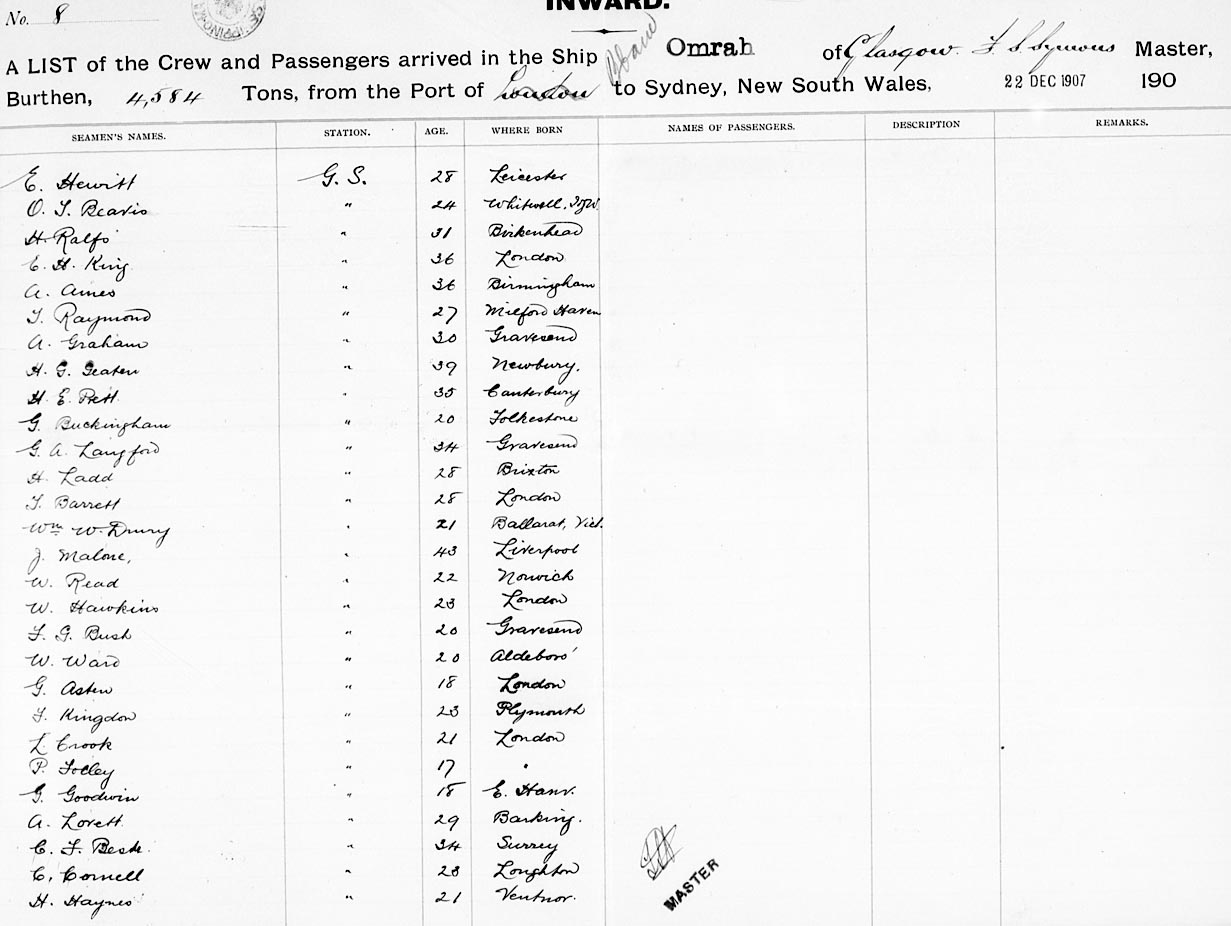 No. 8
INWARD.
A LIST of the Crew and Passengers arrived in the Ship Omrah of Glasgow. F S Symons Master,
Burthen, 4,584 Tons, from the Port of London to Sydney, New South Wales, 22 DEC 1907 190
SEAMEN'S NAMES. STATION. AGE. WHERE BORN NAMES OF PASSENGERS. DESCRIPTION REMARKS.
E. Hewitt G. S. 28 Leicester
O. T. Beavis " 24 Whitwell, I of W.
H. Ralfs " 31 Birkenhead
E. H. King " 36 London
A. Ames " 36 Birmingham
T. Raymond " 27 Milford Haven
A. Graham " 30 Gravesend
H. G. Geaten " 39 Newbury.
H. E. Pett " 35 Canterbury
G. Buckingham " 20 Folkestone
G. A. Langford " 34 Gravesend
H. Ladd " 28 Brixton
T. Barrett " 28 London
Wm W. Drury " 21 Ballarat, Vict.
J. Malone, " 43 Liverpool
W. Read " 22 Norwich
W. Hawkins " 23 London
F. G. Bush " 20 Gravesend
W. Ward " 20 Aldeboro'
G. Asten " 18 London
F. Kingdon " 23 Plymouth
L. Crook " 21 London
P. Folley " 17 "
G. Goodwin " 18 E. Ham.
A. Lovett " 29 Barking.
C. F. Beste. " 34 Surrey
C. Cornell " 23 Loughton
H. Haynes " 21 Ventnor.
MASTER